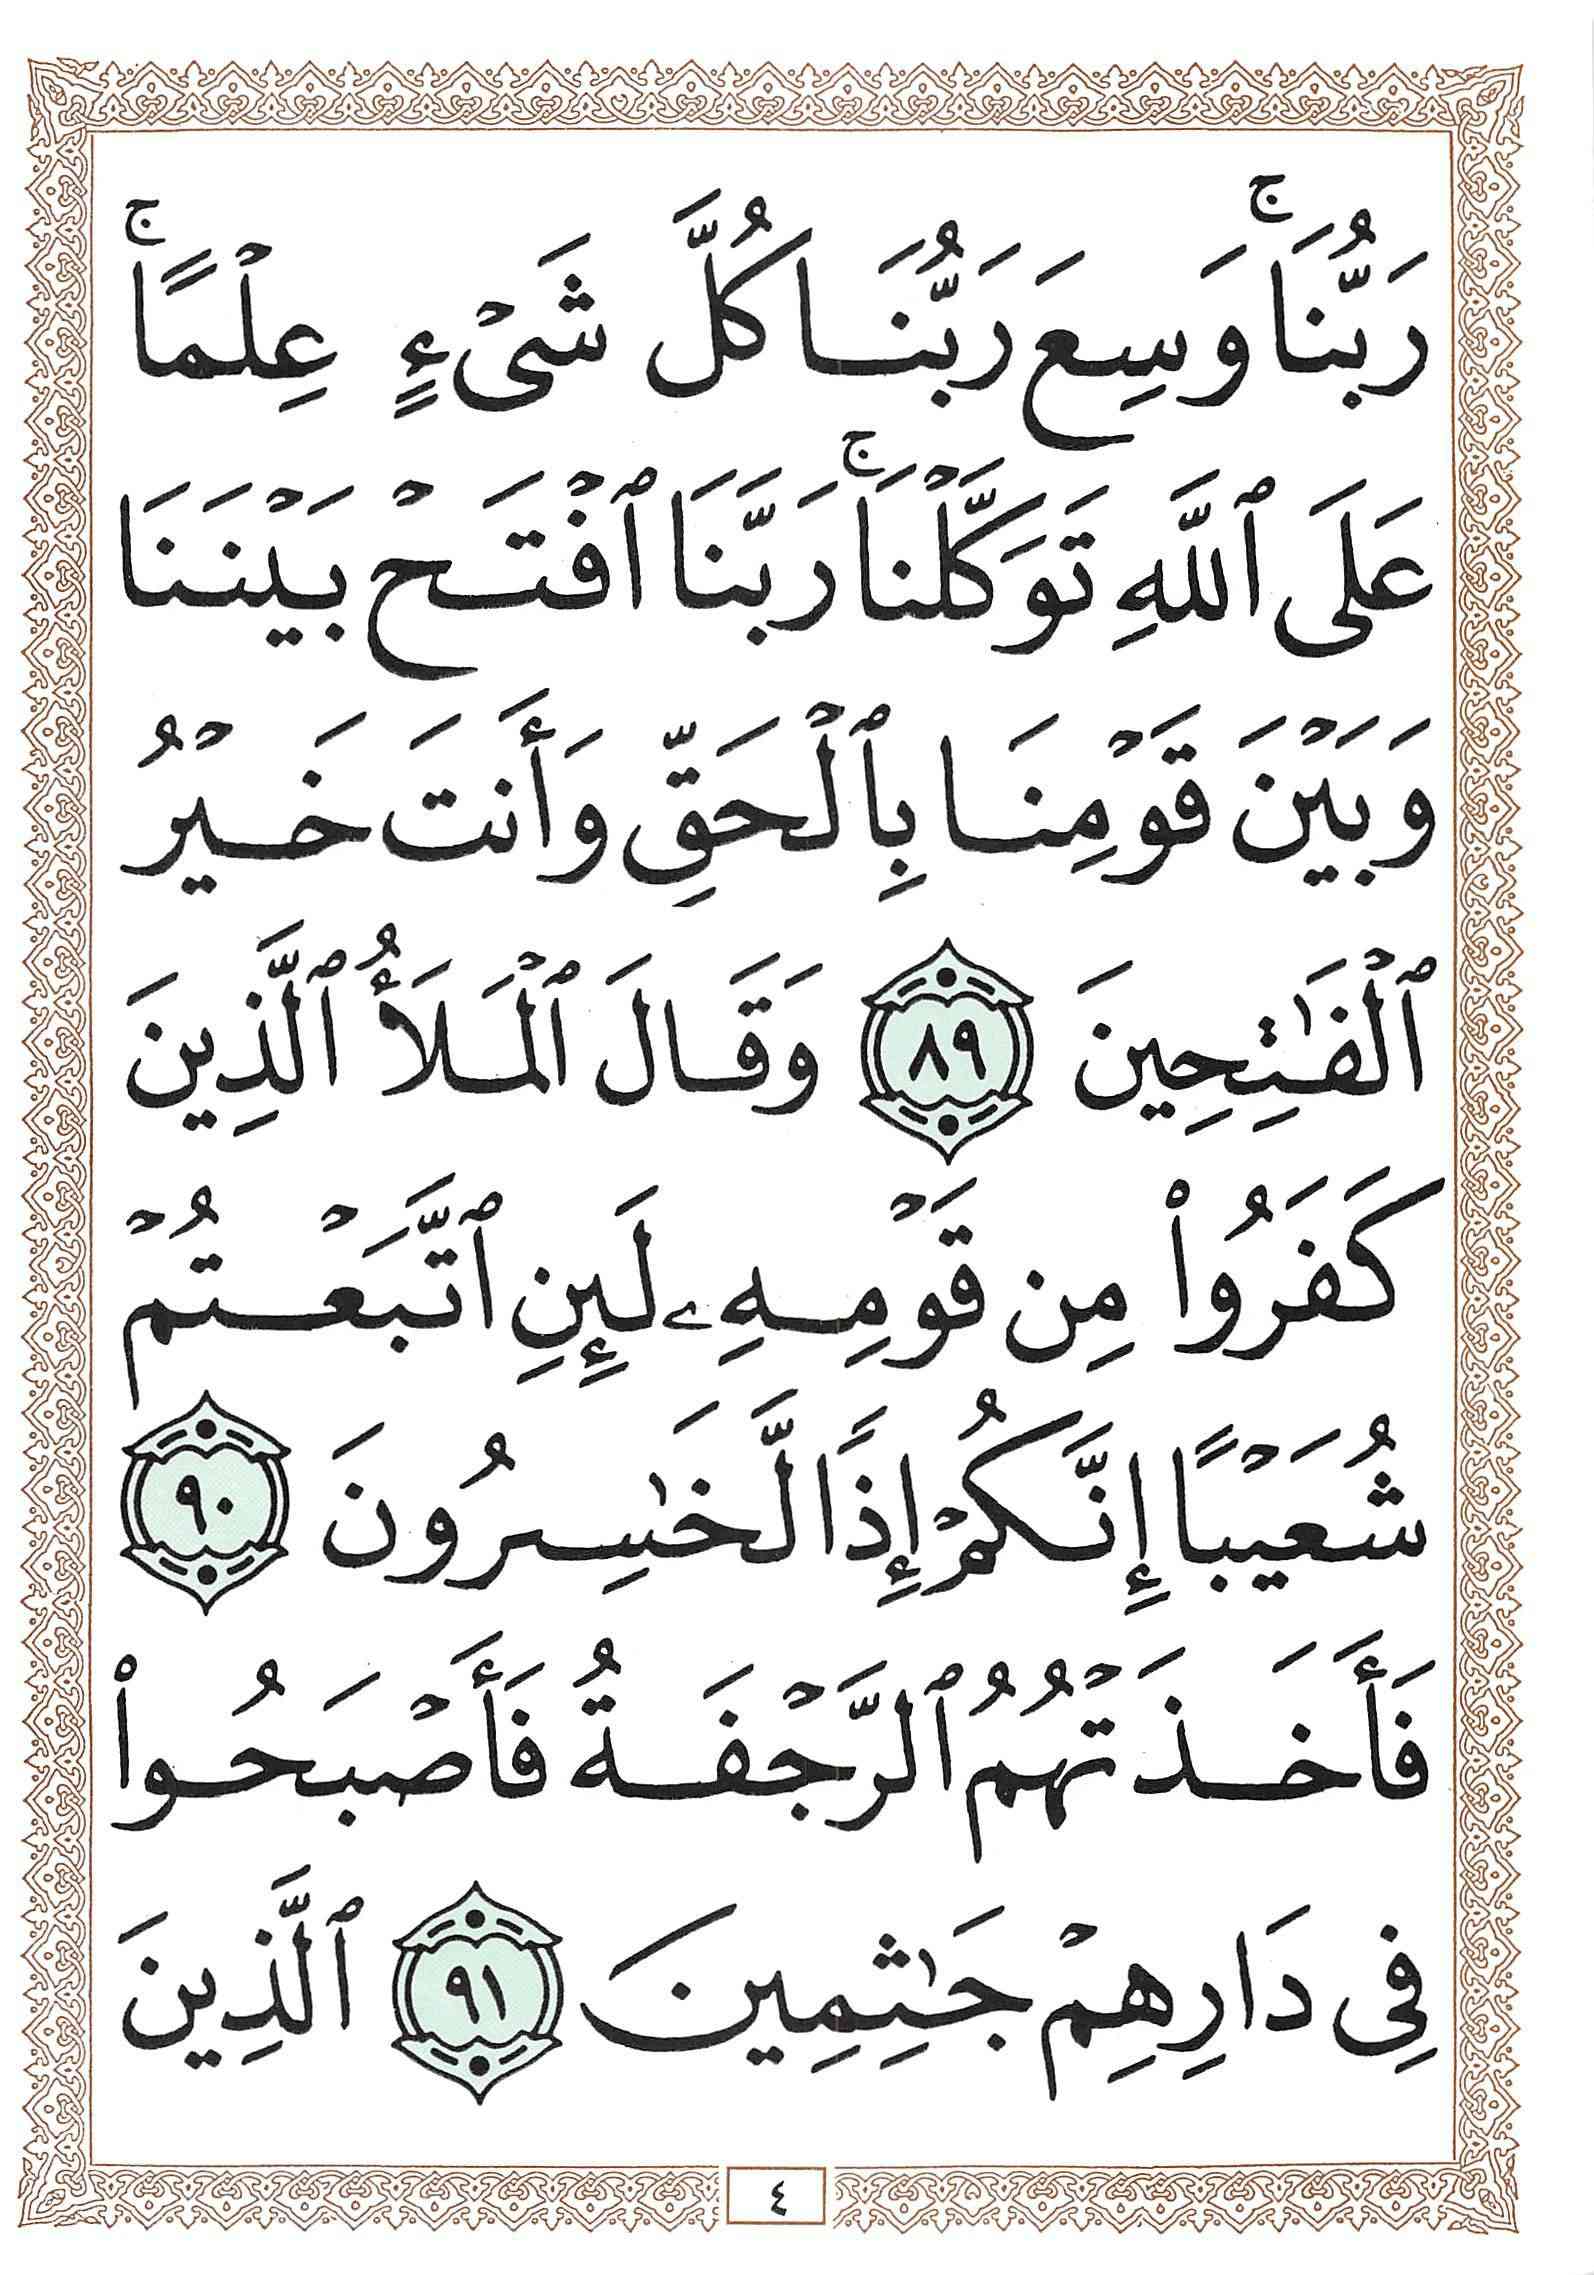 رَبُّنَاۚ وَسِعَ رَبُّنَا كُلَّ شَىْءٍ عِلْمًاۚ
عَلَى ٱللَّهِ تَوَكَّلْنَاۚ رَبَّنَا ٱفْتَحْ بَيْنَنَا
وَبَيْنَ قَوْمِنَا بِٱلْحَقِّ وَأَنتَ خَيْرُ
ٱلْفَـٰتِحِينَ ٨٩ وَقَالَ ٱلْمَلَأُ ٱلَّذِينَ
كَفَرُوا۟ مِن قَوْمِهِۦ لَئِنِ ٱتَّبَعْتُمْ
شُعَيْبًا إِنَّكُمْ إِذًا لَّخَـٰسِرُونَ ٩٠
فَأَخَذَتْهُمُ ٱلرَّجْفَةُ فَأَصْبَحُوا۟
فِى دَارِهِمْ جَـٰثِمِينَ ٩١ ٱلَّذِينَ
٤